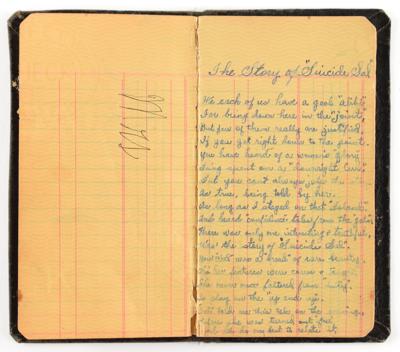 The Story of "Suicide Sal"
We each of us have a good "alibi"
For being down here in the "joint",
But few of them really are justified
If you get right down to the point.
You have heard of a woman's glory
Being spent on a "downright cur"
But you can't always
as true, being told by her.
As long as I stayed on that "Island"
And heard "confidence tales" from the "gals"
There was only one interesting & truthful,
Was the story of "Suicide Sal".
Now "Sal" was a of rare beauty,
her features were
She never once faltered from duty
To play on the "up and up".
told me this tale on the evening
she was turned out "free"
do my best to relate it